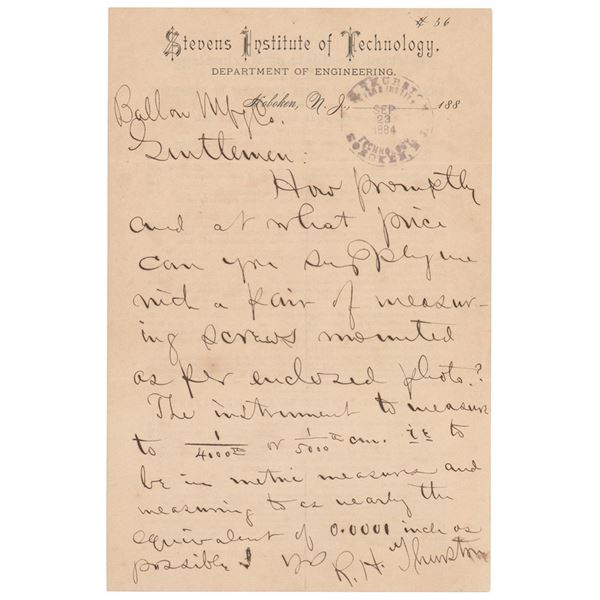 # 56
Stevens Institute of Technology.
DEPARTMENT OF ENGINEERING.
Hoboken, N. J., 188
R. H. THURSTON
SEP
23
1884
HOBOKEN, N. J.
Mfg Co.
Gentlemen:
How promptly
and at what price
can you supply me
with a pair of measur-
ing screws mounted
as per enclosed photo.?
The instrument to measure
to 1/4000th or 1/5000th cm. i.e. to
be in metric measures and
measuring to as nearly the
equivalent of 0.0001 inch as
possible!
R. H. Thurston